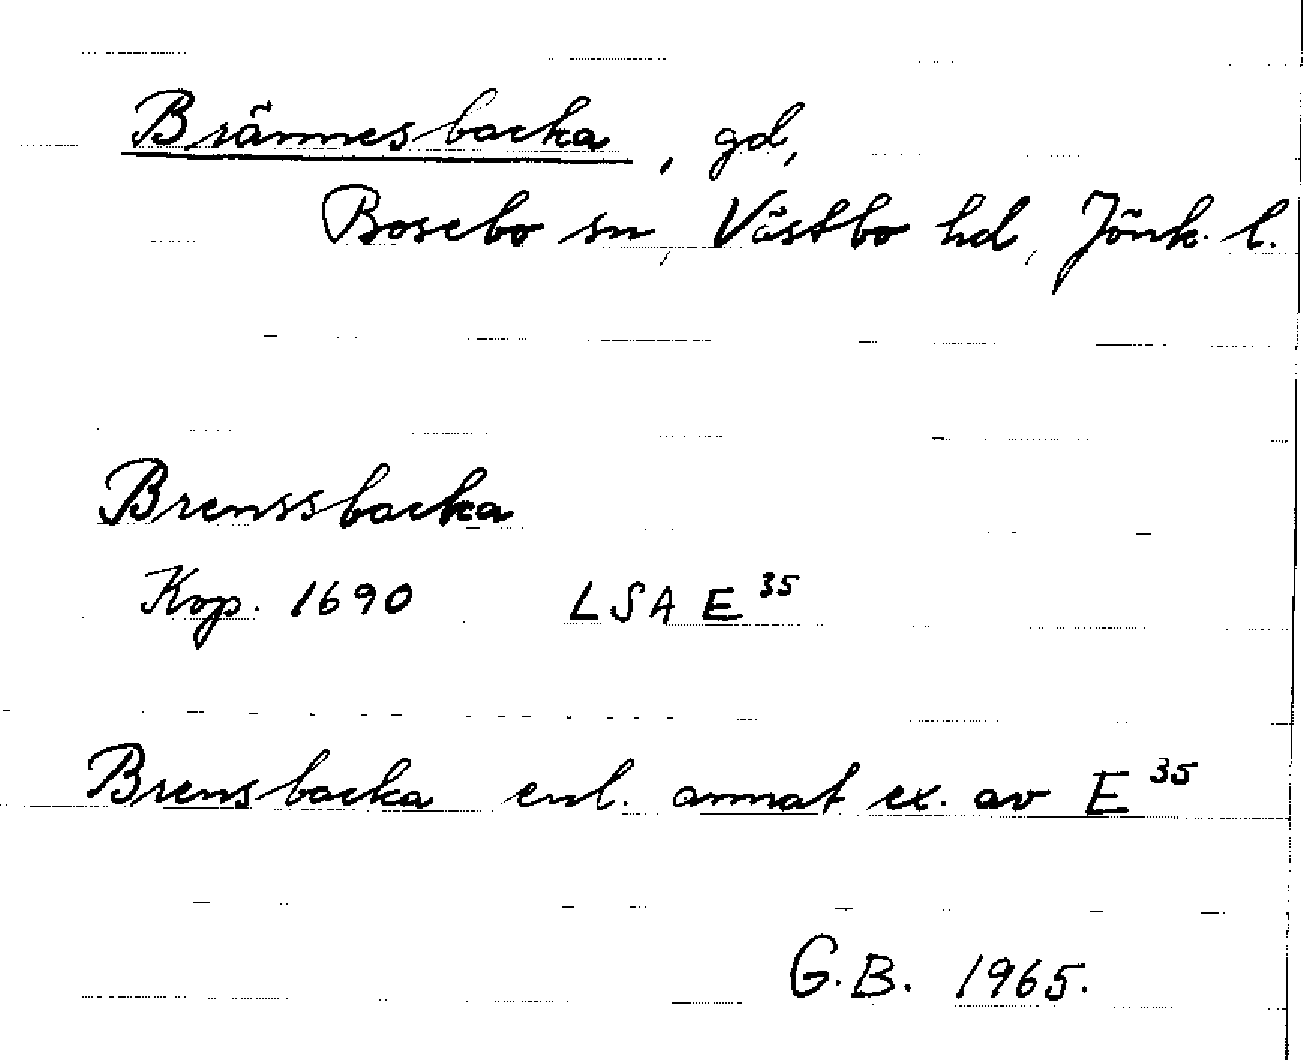 Brännesbacka, gd,
Bosebo sn, Västbo hd, Jönk. l.
Brenssbacka
Kop. 1690 LSA E 35
Brensbacka enl. annat ex. av E 35
G.B. 1965.